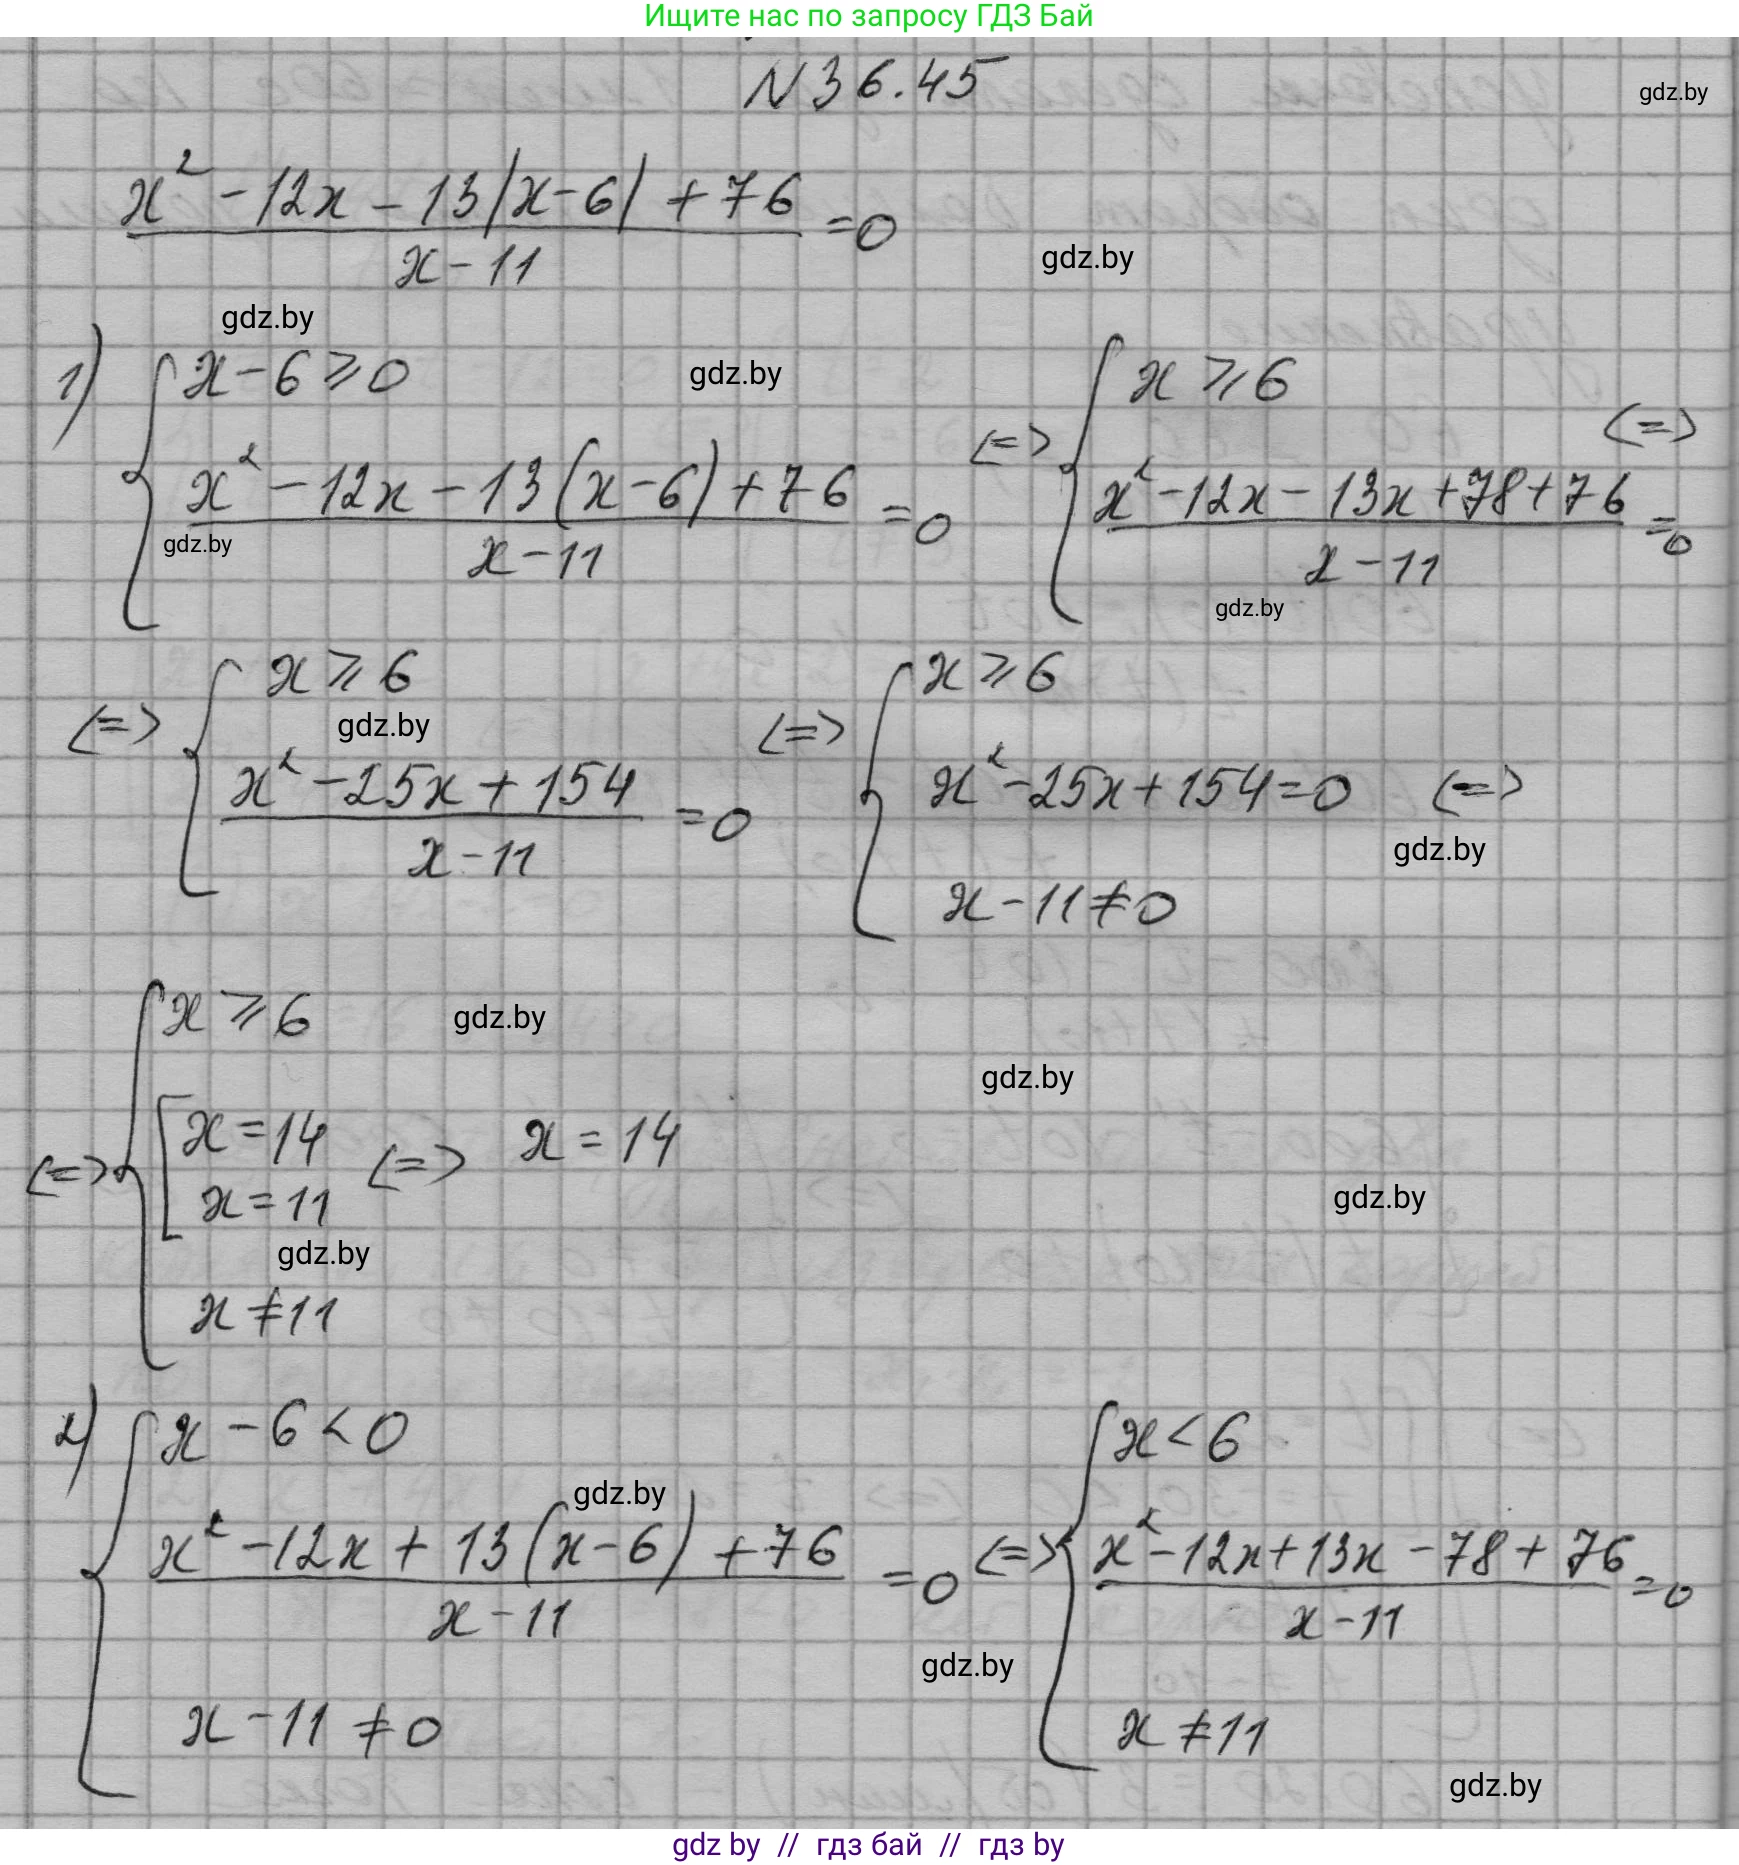 Ищите нас по запросу ГДЗ Бай
N 36.45
gdz.by
x² - 12x - 13|x-6| + 76
x - 11
=0
gdz.by
gdz.by
1) { x - 6 ⩾ 0
gdz.by
x² - 12x - 13(x-6) + 76
x - 11
=0
gdz.by
<=> { x ⩾ 6
x² - 12x - 13x + 78 + 76
x - 11
=0
<=>
gdz.by
<=> { x ⩾ 6
gdz.by
x² - 25x + 154
x - 11
=0
<=> { x ⩾ 6
x² - 25x + 154 = 0 <=>
gdz.by
x - 11 ≠ 0
<=> { x ⩾ 6
gdz.by
gdz.by
[ x = 14
x = 11
<=> x = 14
gdz.by
gdz.by
x ≠ 11
2) { x - 6 < 0
gdz.by
x² - 12x + 13(x-6) + 76
x - 11
=0
x - 11 ≠ 0
<=> { x < 6
x² - 12x + 13x - 78 + 76
x - 11
=0
gdz.by
x ≠ 11
gdz.by
gdz by // гдз бай // гдз by